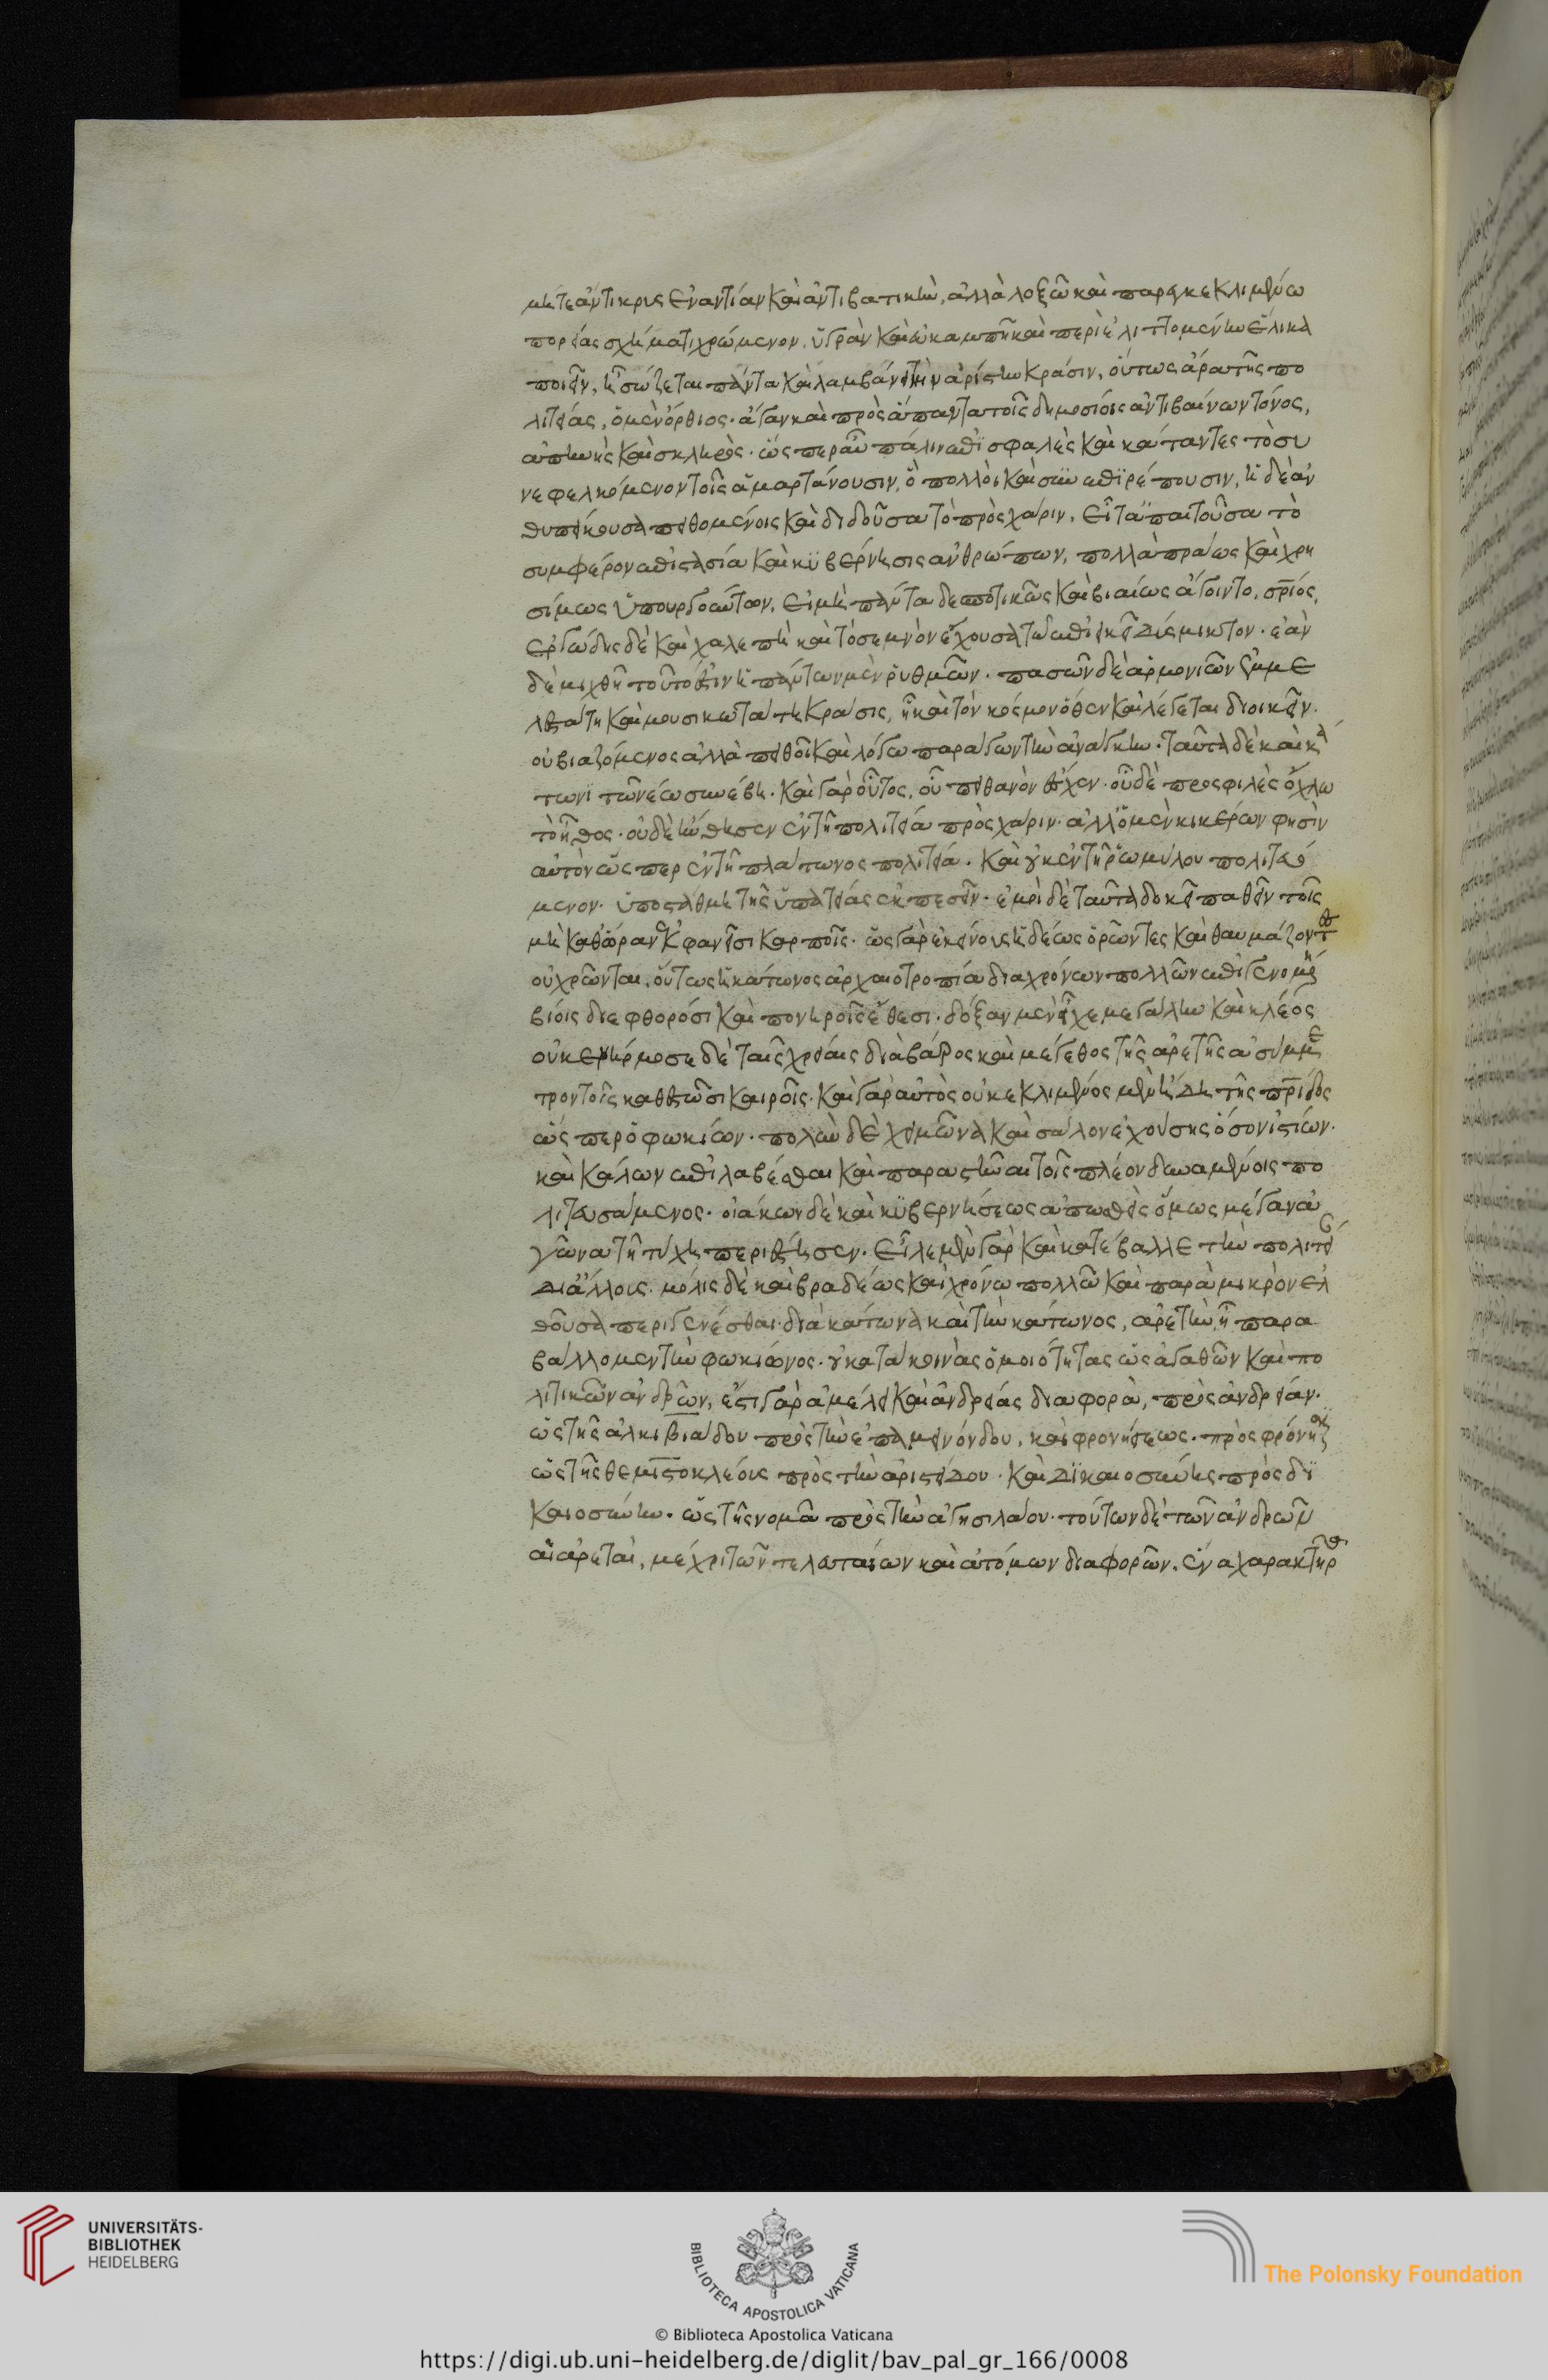 μήτε ἄντικρυς ἐναντίαν καὶ ἀντιβατικὴν, ἀλλὰ λοξῶ καὶ παρεγκεκλιμένω
πορείας σχήματι χρώμενον, ὑγρὰν καὶ εὐκαμπῆ καὶ περιελιττομένην ἕλικα
ποιεῖν, ἧ σώζεται πάντα καὶ λαμβάνει τὴν ἀρίστην κράσιν, οὕτως ἄρα τῆς πο
λιτείας, ὁ μὲν ὄρθιος ἄγαν καὶ πρὸς ἅπαντα τοῖς δημοσίοις ἀντιβαίνων τόνος,
ἀπηνὴς καὶ σκληρὸς. ὥς περ αὖ πάλιν ἐπϊσφαλὲς καὶ κάταντες τὸ συ
νεφελκόμενον τοῖς ἁμαρτάνουσιν, ὁ πολλὸι καὶ συνεπϊρέπουσιν, ἡ δὲ ἀν
θυπείκουσα πειθομένοις καὶ διδοῦσα τὸ πρὸς χάριν, εἶτα ἀπαιτοῦσα τὸ
συμφέρον ἐπιστασία καὶ κϋβέρνησις ἀνθρώπων, πολλὰ πράως καὶ χρη
σίμως ὑπουργούντων, εἰ μὴ πάντα δεσποτικῶς καὶ βιαίως ἄγοιντο, σπριος,
ἐργώδης δὲ καὶ χαλεπὴ καὶ τὸ σεμνὸν ἔχουσα τῶ ἐπιεικεῖ δύσμικτον. ἐὰν
δὲ μιχθῆ τοῦτό ἐστιν ἡ πάντων μὲν ῥυθμῶν. πασῶν δὲ ἁρμονιῶν ἐμμε
λεστάτη καὶ μουσικωτάτη κράσις, ἧ καὶ τὸν κόσμον ὁ θεὸν καὶ λέγεται διοικεῖν.
οὐ βιαζόμενος ἀλλὰ πειθοῖ καὶ λόγω παράγων τὴν ἀνάγκην. ταῦτα δὲ καὶ κα
τωνϊ τῶ νέω συνέβη. καὶ γὰρ οὗτος, οὐ πιθανὸν ἔσχεν. οὐδὲ προσφιλὲς ὄχλω
τὸ ἦθος. οὐδὲ ἤνθησεν ἐν τῆ πολιτεία πρὸς χάριν. ἀλλ' ὁ μὲν κικέρων φησὶν
αὐτὸν ὥς περ ἐν τῆ πλάτωνος πολιτεία. καὶ οὐκ ἐν τῆ ῥωμύλου πολιτευό
μενον. ὑποστάθμη τῆς ὑπατείας ἐκπεσεῖν. ἐμοὶ δὲ ταῦτα δοκεῖ παθεῖν τοῖς
μὴ καθ' ὥραν ἐκφανεῖσι καρποῖς. ὡς γὰρ ἐκείνοις ἡδέως ὁρῶντες καὶ θαυμάζοντες
οὐ χρῶνται, οὕτως ἡ κάτωνος ἀρχαιοτροπία διὰ χρόνων πολλῶν ἐπιγενομένη
βίοις διεφθορόσι καὶ πονηροῖς ἔθεσι. δόξαν μὲν εἶχε μεγάλην καὶ κλέος
οὐκ ἐνήρμοσε δὲ ταῖς χρείαις διὰ βάρος καὶ μέγεθος τῆς ἀρετῆς ἀσύμμε
τρον τοῖς καθεστῶσι καιροῖς. καὶ γὰρ αὐτὸς οὐ κεκλιμένος μὲν ἤδη τῆς πρίδος
ὥς περ ὁ φωκίων. πολὺν δὲ χειμῶνα καὶ σάλον ἐχούσης ὅσον ἱστίων.
καὶ κάλων ἐπιλαβέσθαι καὶ παραστῆναι τοῖς πλέον δυναμένοις πο
λιτευσάμενος. οἰάκων δὲ καὶ κϋβερνήσεως ἀπωσθεὶς ὅμως μέγαν ἀ
γῶνα τῆ τύχη περιέστησεν. εἷλε μὲν γὰρ καὶ κατέβαλλε τὴν πολιτεί
δι' ἄλλους. μόλις δὲ καὶ βραδέως καὶ χρόνω πολλῶ καὶ παρὰ μικρὸν ἐλ
θοῦσα περιγενέσθαι. διὰ κάτωνα καὶ τὴν κάτωνος, ἀρετὴν, ἧ παρα
βάλλομεν τὴν φωκίωνος. οὐ κατὰ κοινὰς ὁμοιότητας ὡς ἀγαθῶν καὶ πο
λιτικῶν ἀνδρῶν, ἔστι γὰρ ἀμέλει καὶ ἀνδρείας διαφορὰ, πρὸς ἀνδρείαν.
ὡς τῆς ἀλκιβιάδου πρὸς τὴν ἐπαμεινόνδου, καὶ φρονήσεως. πρὸς φρόνησιν
ὡς τῆς θεμιστοκλέους πρὸς τὴν ἀριστείδου. καὶ δϊκαιοσύνης πρὸς δϊ
καιοσύνην. ὡς τῆς νομᾶ πρὸς τὴν ἀγησιλάου. τούτων δὲ τῶν ἀνδρῶν
αἱ ἀρεταὶ, μέχρι τῶν τελευταίων καὶ ἀτόμων διαφορῶν, ἕνα χαρακτῆρα
UNIVERSITÄTS-
BIBLIOTHEK
HEIDELBERG
BIBLIOTECA APOSTOLICA VATICANA
The Polonsky Foundation
© Biblioteca Apostolica Vaticana
https://digi.ub.uni-heidelberg.de/diglit/bav_pal_gr_166/0008